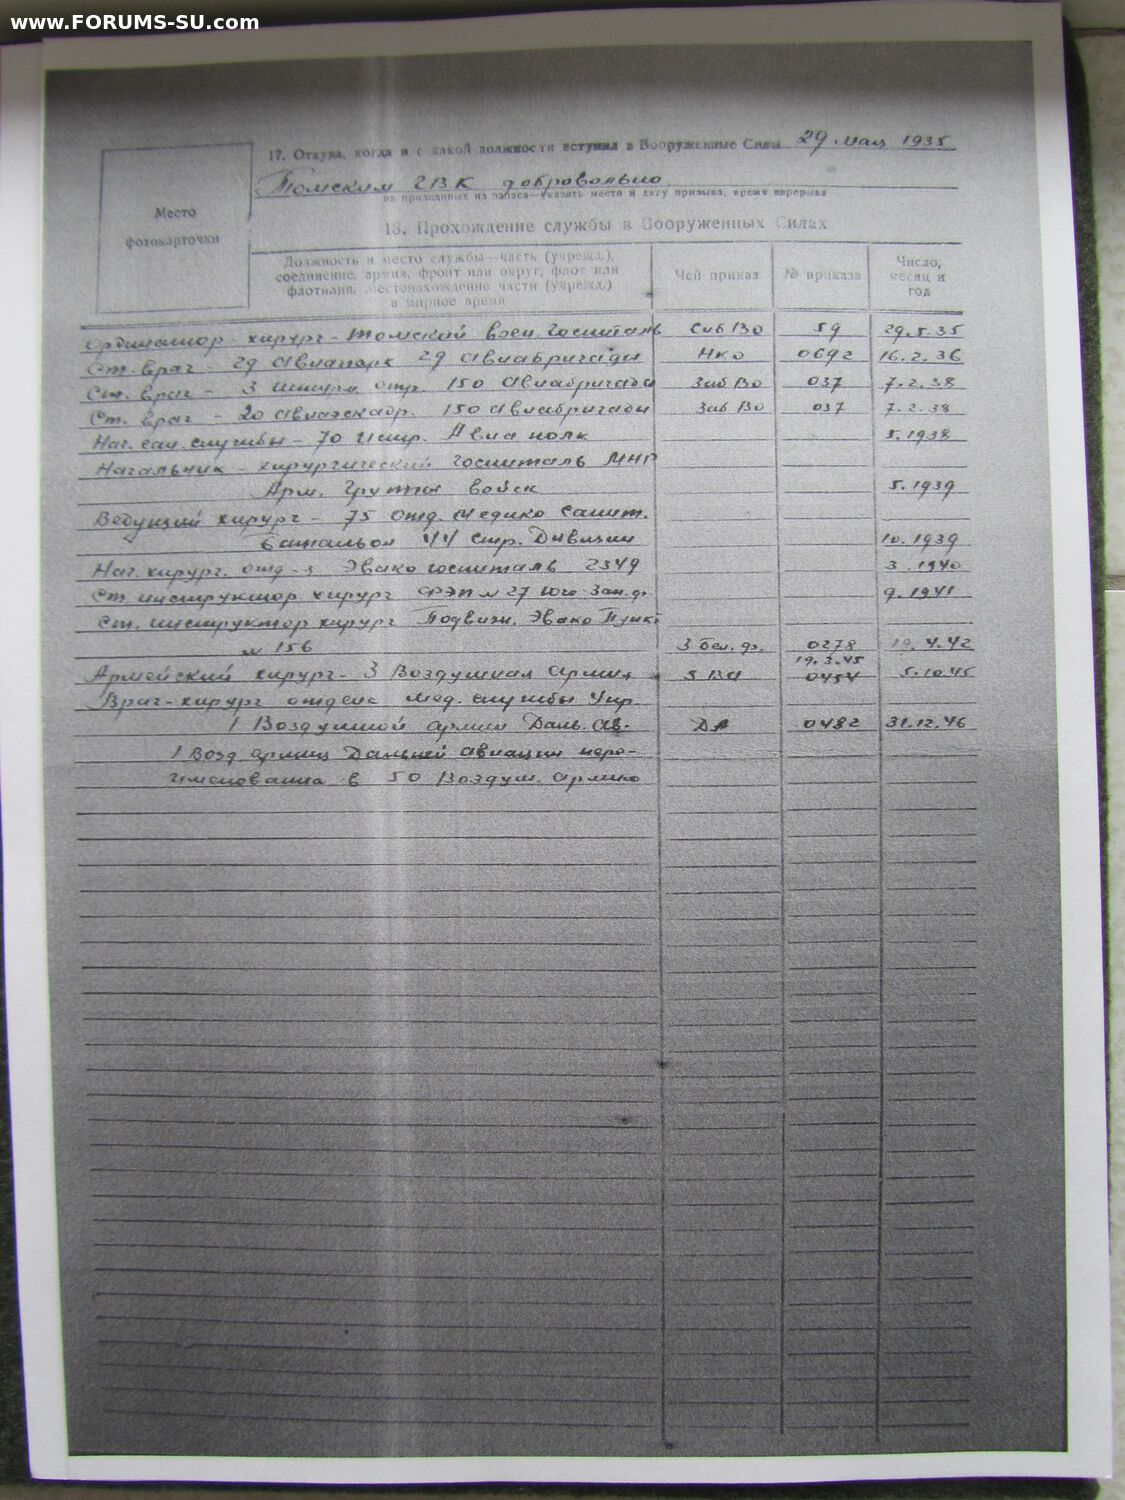 www.FORUMS-SU.com
17. Откуда, когда и с какой должности вступил в Вооруженные Силы 29 мая 1935
Томским ГВК добровольно
из призванных из запаса—указать место и дату призыва, время перерыва
Место
фотокарточки
18. Прохождение службы в Вооруженных Силах
Должность и место службы—часть (учрежд.),
соединение, армия, фронт или округ, флот или
флотилия, местонахождение части (учрежд.)
в мирное время
Чей приказ
№ приказа
Число,
месяц и
год
Ординатор - хирург - Томский воен. Госпиталь СибВО 59 29.5.35
Ст. врач - 29 Авиапарк 29 Авиабригады НКО 0692 16.2.36
Ст. врач - 3 штурм. отр. 150 Авиабригада ЗабВО 037 7.2.38
Ст. врач - 20 авиаэскадр. 150 авиабригады ЗабВО 037 7.2.38
Нач. сан. службы - 70 Истр. Авиа полк 5.1938
Начальник - хирургический Госпиталь МНР
Арм. Группы войск 5.1939
Ведущий хирург - 75 отд. Медико Санит.
Батальон 44 стр. Дивизии 10.1939
Нач. хирург. отд-я Эвако госпиталь 2349 3.1940
Ст. инструктор хирург ФЭП № 27 Юго-Зап. ф. 9.1941
Ст. инструктор хирург Подвижн. Эвако Пункт
№ 156 3 Бел. фр. 0278 19.4.42
Армейский хирург - 3 Воздушная Армия 3 ВА 19.3.45 0454 5.10.45
Врач-хирург отдела мед. службы Упр.
1 Воздушной армии Даль. Ав. ДА 0482 31.12.46
1 Возд. армиц Дальней авиации пере-
именована в 50 Воздуш. армию